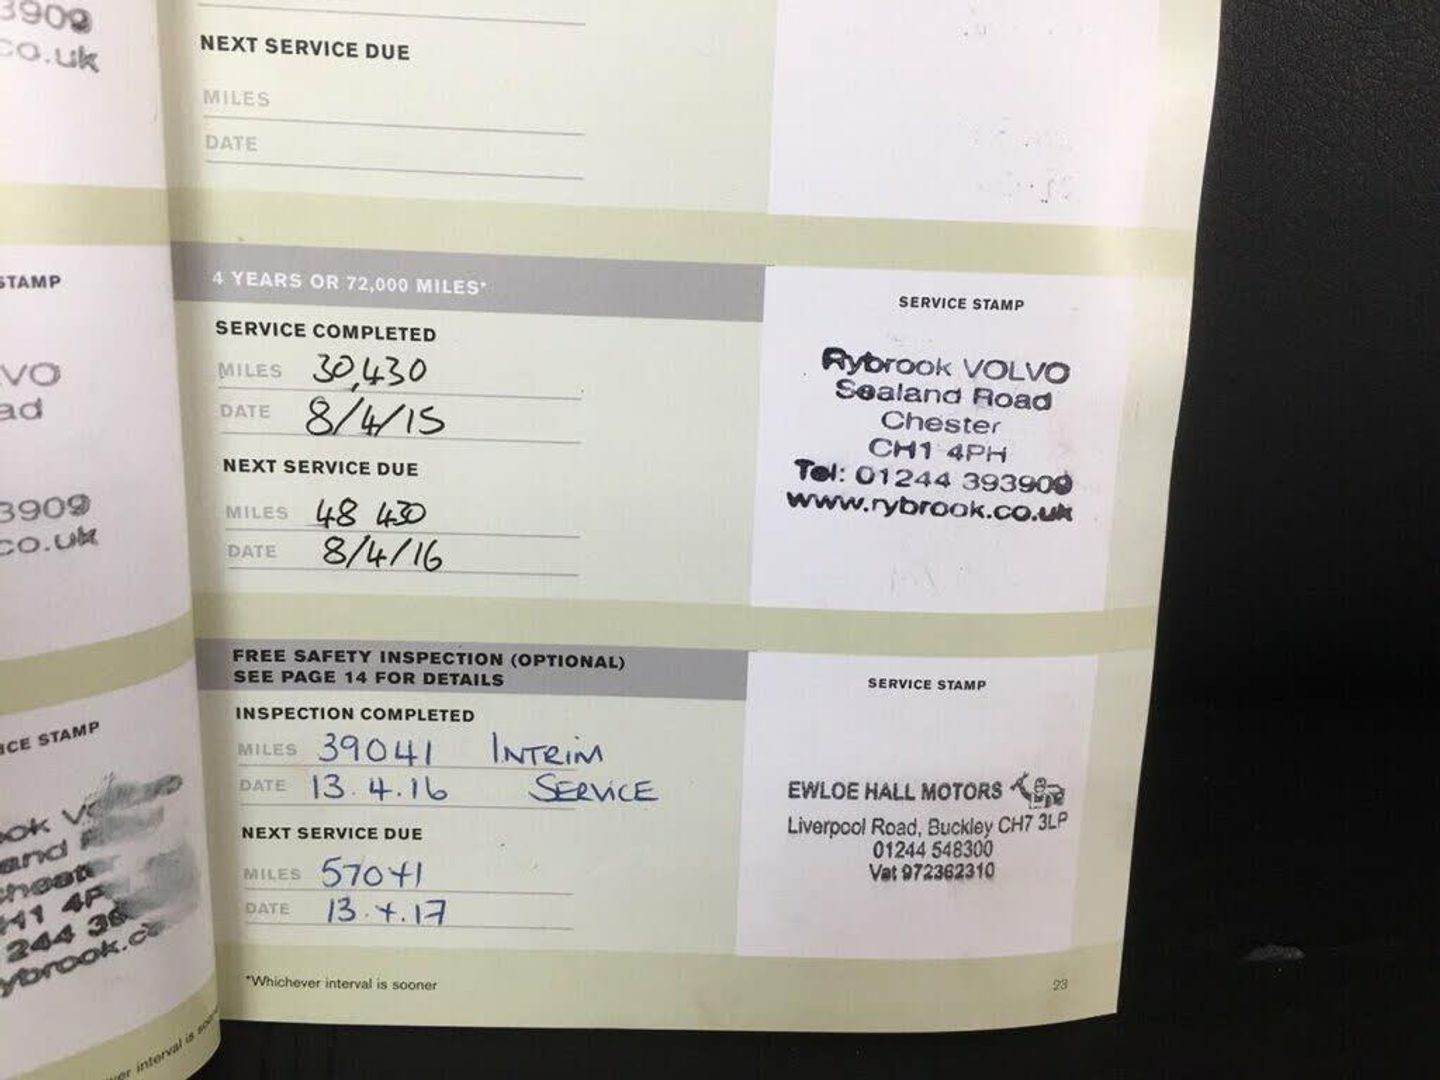 3909
co.uk
NEXT SERVICE DUE
MILES
DATE
STAMP
VO
ad
3909
co.uk
4 YEARS OR 72,000 MILES*
SERVICE COMPLETED
MILES 30,430
DATE 8/4/15
NEXT SERVICE DUE
MILES 48 430
DATE 8/4/16
SERVICE STAMP
Rybrook VOLVO
Sealand Road
Chester
CH1 4PH
Tel: 01244 393909
www.rybrook.co.uk
ICE STAMP
ook Vo
and
CH1 4P
244 39
ybrook.co
FREE SAFETY INSPECTION (OPTIONAL)
SEE PAGE 14 FOR DETAILS
INSPECTION COMPLETED
MILES 39041 INTRIM
DATE 13.4.16 SERVICE
NEXT SERVICE DUE
MILES 57041
DATE 13.4.17
SERVICE STAMP
EWLOE HALL MOTORS
Liverpool Road, Buckley CH7 3LP
01244 548300
Vat 972362310
*Whichever interval is sooner
23
ver interval is soon